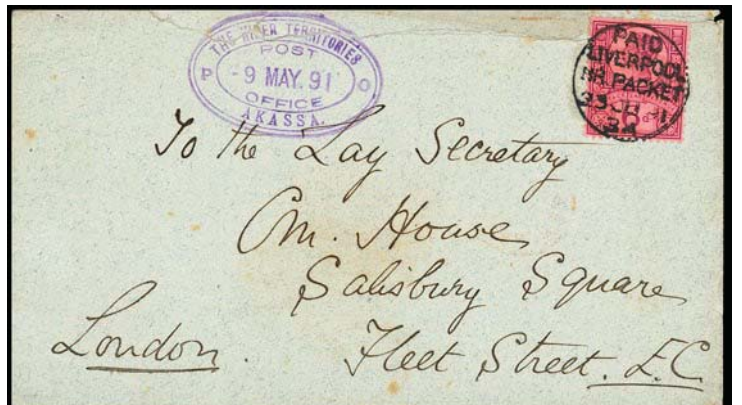 THE NIGER TERRITORIES
POST
P - 9 MAY. 91 O
OFFICE
AKASSA.
PAID
LIVERPOOL
BR. PACKET
91
To the Lay Secretary
C.M. House
Salisbury Square
Fleet Street. E.C
London.